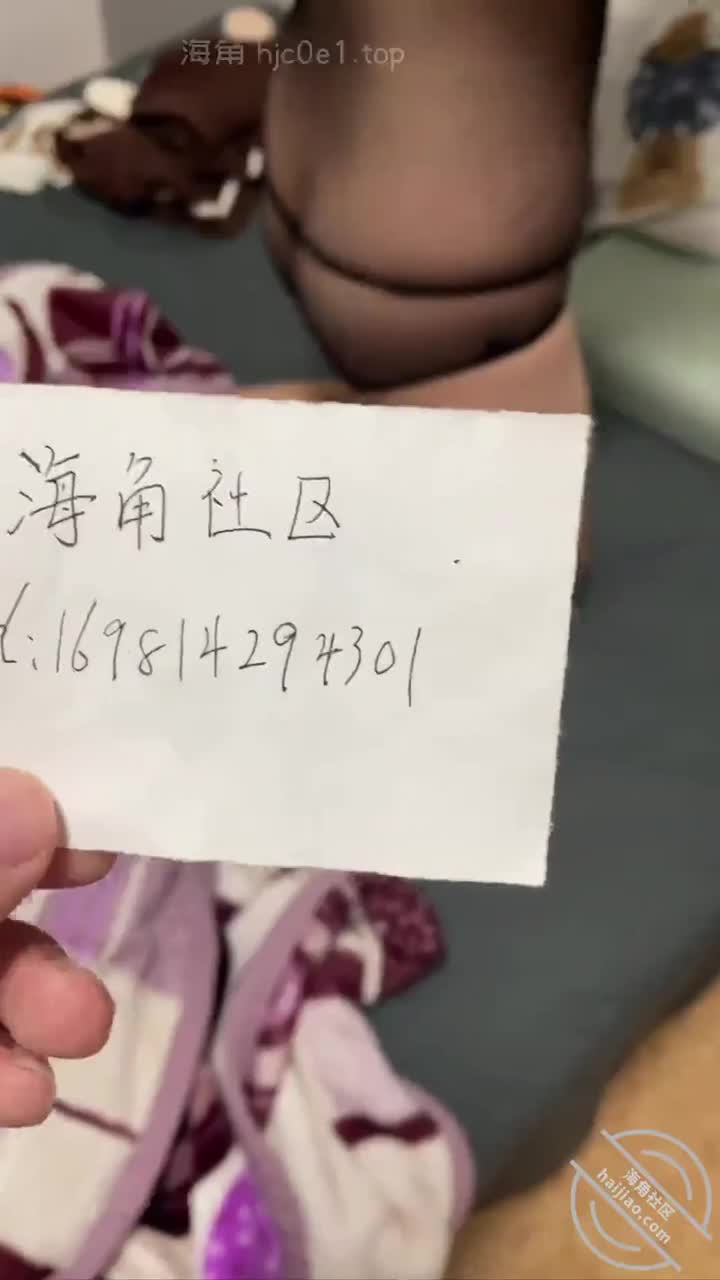 海角 hjc0e1.top
海角社区
:169814294301
海角社区
haijiao.com